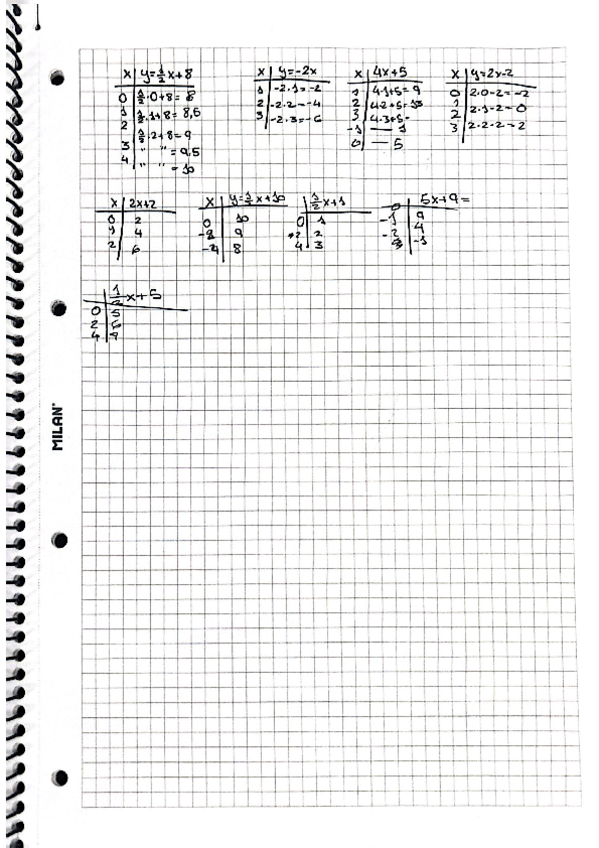 x | y=1/2x+8
0 | 1/2·0+8=8
1 | 1/2·1+8=8,5
2 | 1/2·2+8=9
3 | " " =9,5
4 | " " =10
x | y=-2x
1 | -2·1=-2
2 | -2·2=-4
3 | -2·3=-6
x | 4x+5
1 | 4·1+5=9
2 | 4·2+5=13
3 | 4·3+5=
-1 | — 1
0 | — 5
x | y=2x-2
0 | 2·0-2=-2
1 | 2·1-2=0
2 | 2·2-2=2
3
x | 2x+2
0 | 2
1 | 4
2 | 6
x | y=1/2x+10
0 | 10
-2 | 9
-4 | 8
1/2x+1
0 | 1
2 | 2
4 | 3
5x+9=
0 | 9
-1 | 4
-2 | -1
1/2x+5
0 | 5
2 | 6
4 | 7
MILAN